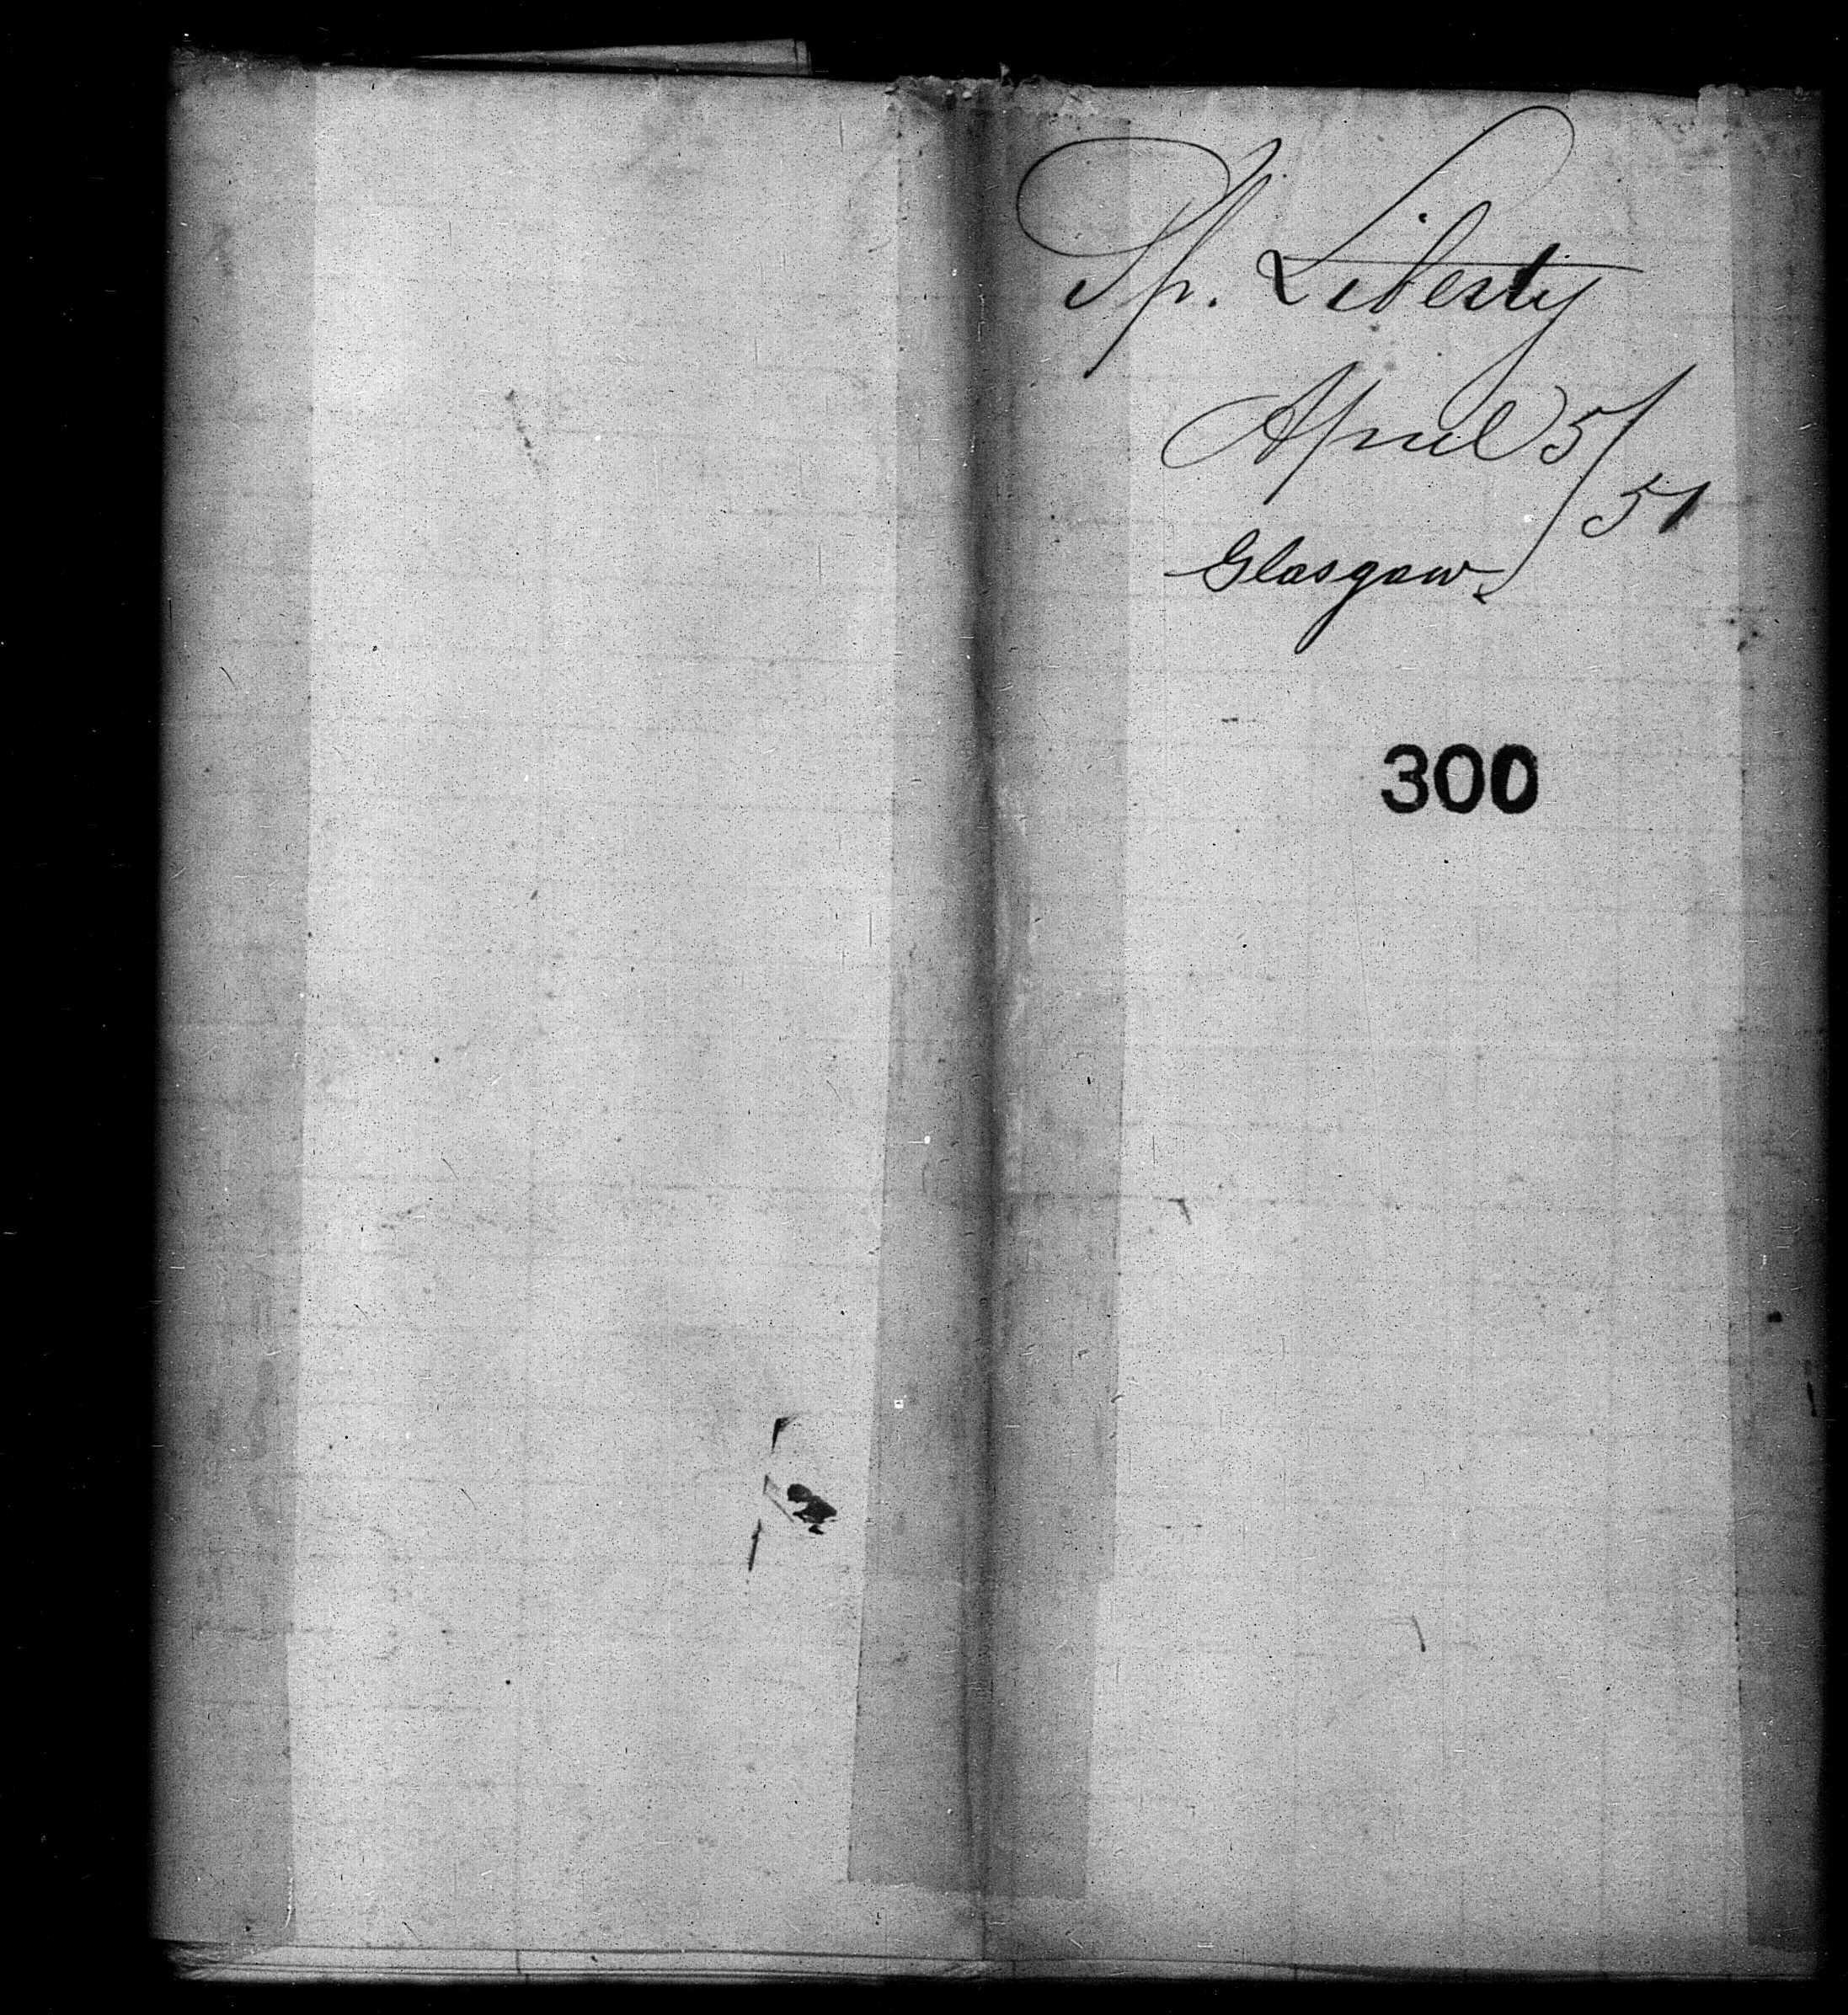 Sh. Liberty
April 5/51
Glasgow
300